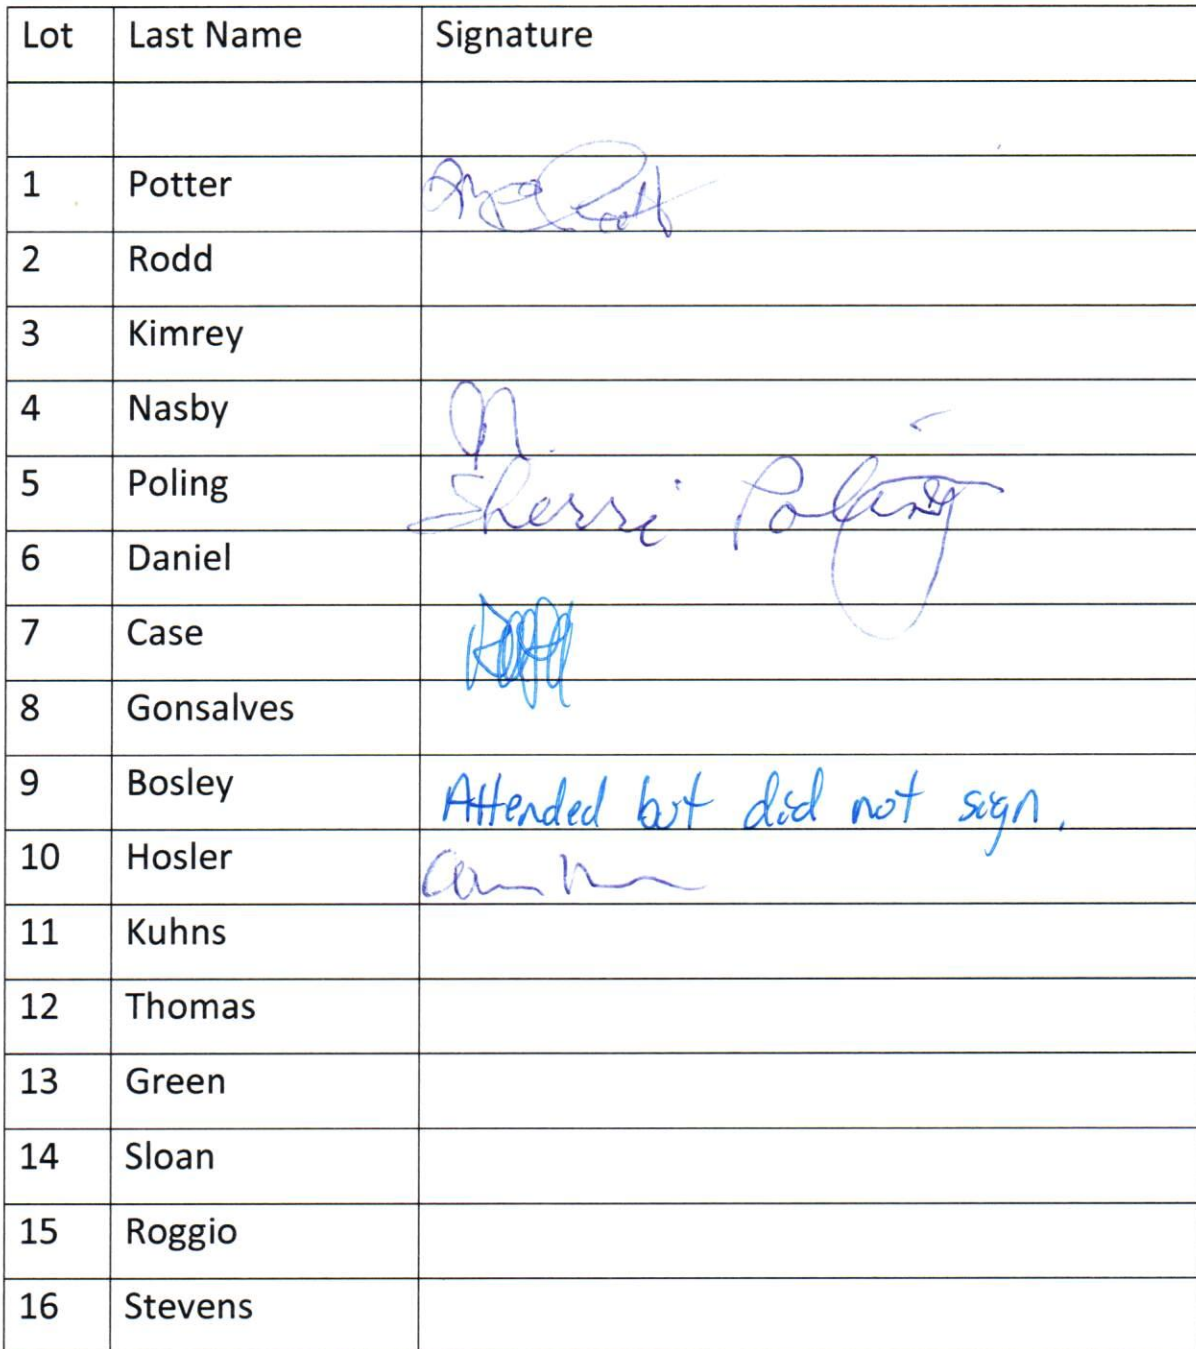 Lot Last Name Signature
1 Potter
2 Rodd
3 Kimrey
4 Nasby
5 Poling Sherri Poling
6 Daniel
7 Case
8 Gonsalves
9 Bosley Attended but did not sign.
10 Hosler
11 Kuhns
12 Thomas
13 Green
14 Sloan
15 Roggio
16 Stevens